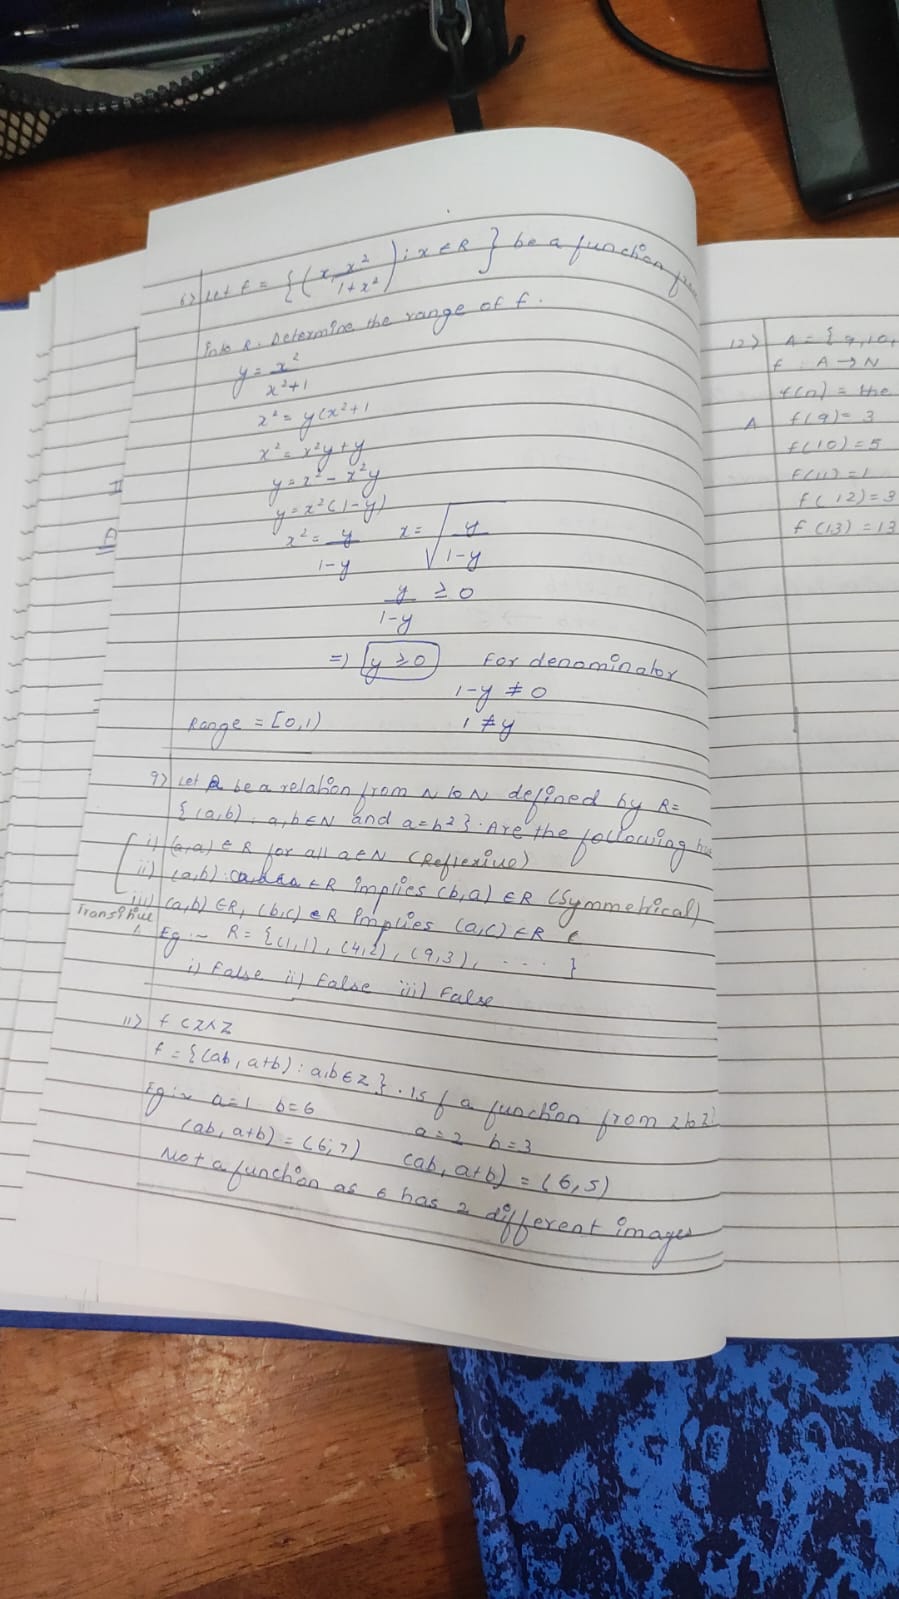 6) Let f = {(x, x²/1+x²) : x ∈ R} be a function
into R. Determine the range of f.
y = x²/x²+1
x² = y(x²+1
x² = x²y + y
y = x² - x²y
y = x²(1-y)
x² = y/1-y x = √y/1-y
y/1-y ≥ 0
=) y ≥ 0 For denominator
1-y ≠ 0
Range = [0,1) 1 ≠ y
9) Let R be a relation from N to N defined by R=
{(a,b) : a,b ∈ N and a=b²}. Are the following
i) (a,a) ∈ R for all a ∈ N (Reflexive)
ii) (a,b) ∈ R implies (b,a) ∈ R (Symmetrical)
iii) (a,b) ∈ R, (b,c) ∈ R Implies (a,c) ∈ R
Transitive
Eg :- R = {(1,1), (4,2), (9,3), .... }
i) False ii) False iii) False
11) f ⊂ Z×Z
f = {(ab, a+b) : a,b ∈ Z}. Is f a function from Z to Z
Eg :- a=1 b=6 a=2 b=3
(ab, a+b) = (6,7) (ab, a+b) = (6,5)
Not a function as 6 has 2 different images
12) A = {9,10,
f : A → N
f(n) = the
A f(9) = 3
f(10) = 5
f(11) = 1
f(12) = 3
f(13) = 13